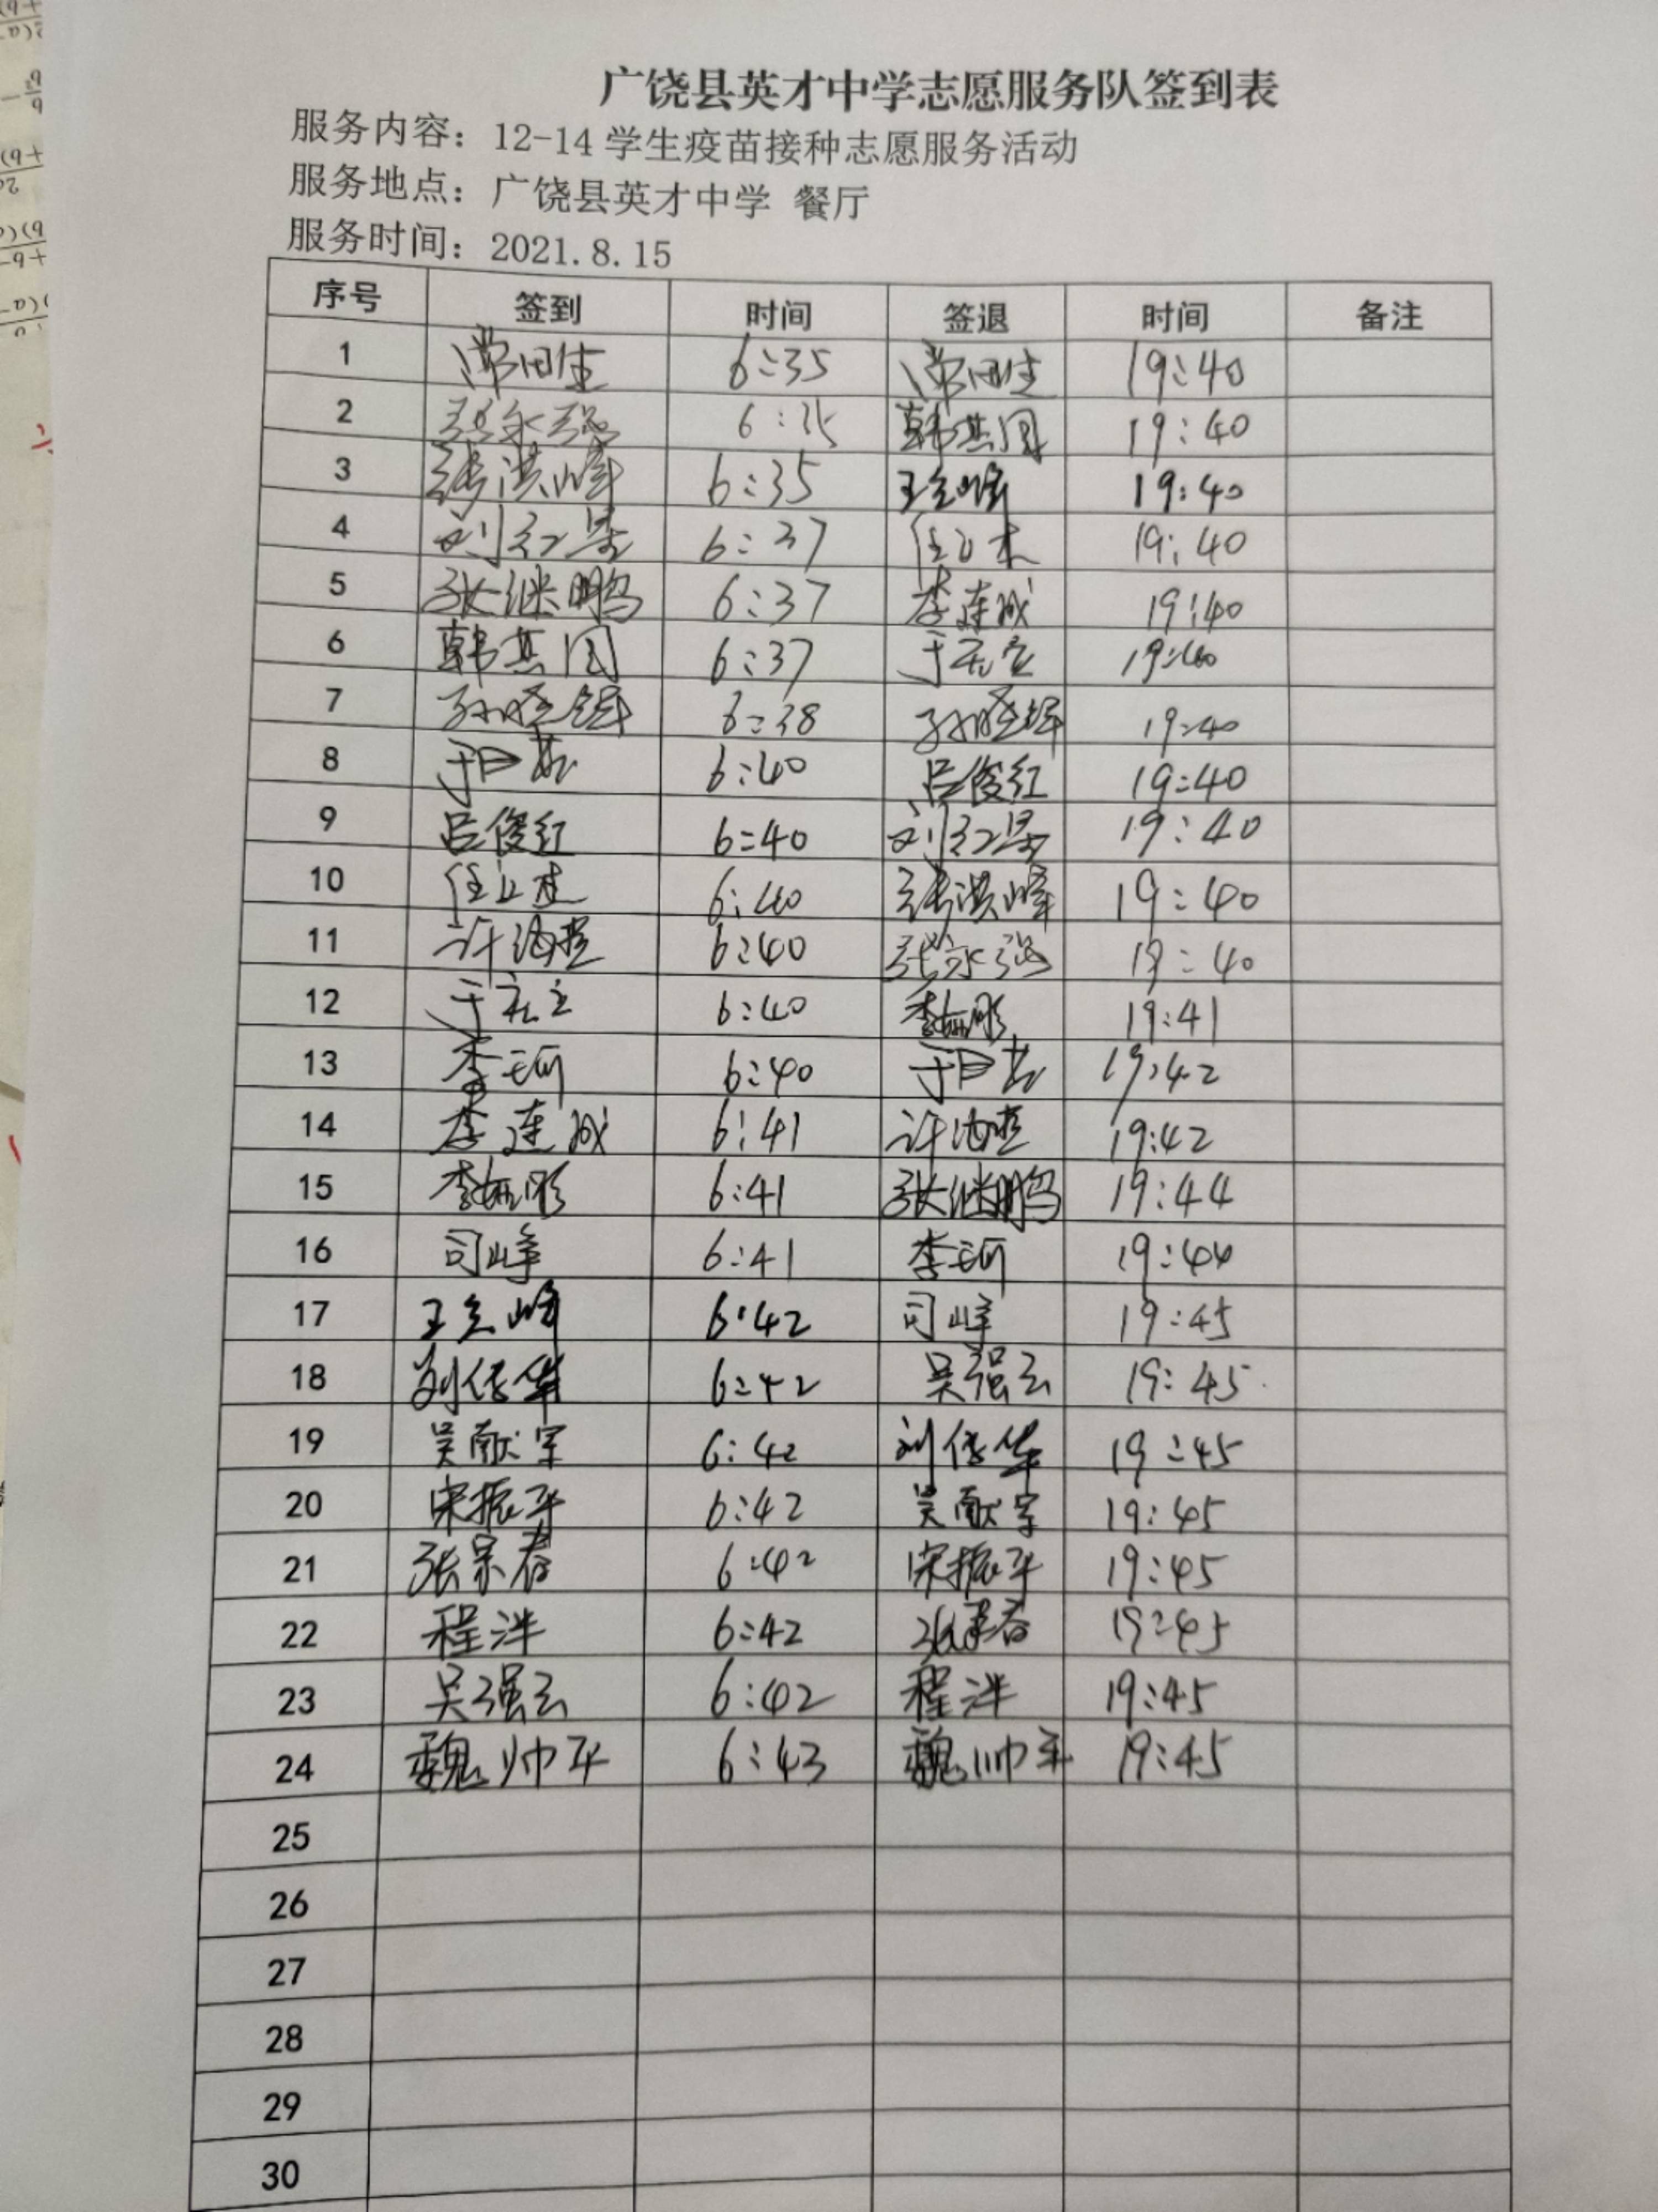 广饶县英才中学志愿服务队签到表
服务内容：12-14 学生疫苗接种志愿服务活动
服务地点：广饶县英才中学 餐厅
服务时间：2021.8.15
序号 签到 时间 签退 时间 备注
1 6:35 19:40
2 韩其国 19:40
3 张洪峰 6:35 王立峰 19:40
4 刘红景 6:37 19:40
5 张继鹏 6:37 李连成 19:40
6 韩其国 6:37 19:40
7 孙晓辉 6:38 孙晓辉 19:40
8 6:40 吕俊红 19:40
9 吕俊红 6:40 刘红景 19:40
10 6:40 张洪峰 19:40
11 6:40 张永强 19:40
12 6:40 19:41
13 李珂 6:40 19:42
14 李连成 6:41 19:42
15 6:41 张继鹏 19:44
16 司峰 6:41 李珂 19:44
17 王立峰 6:42 司峰 19:45
18 刘传华 6:42 吴强云 19:45
19 吴献军 6:42 刘传华 19:45
20 宋振平 6:42 吴献军 19:45
21 张宗春 6:42 宋振平 19:45
22 程洋 6:42 张宗春 19:45
23 吴强云 6:42 程洋 19:45
24 魏帅平 6:43 魏帅平 19:45
25
26
27
28
29
30